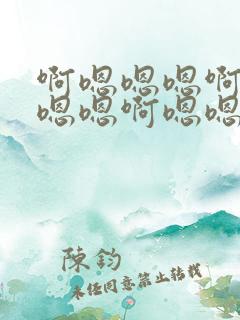 啊嗯嗯嗯啊
嗯嗯啊嗯嗯
陳鈞
未经同意禁止转载